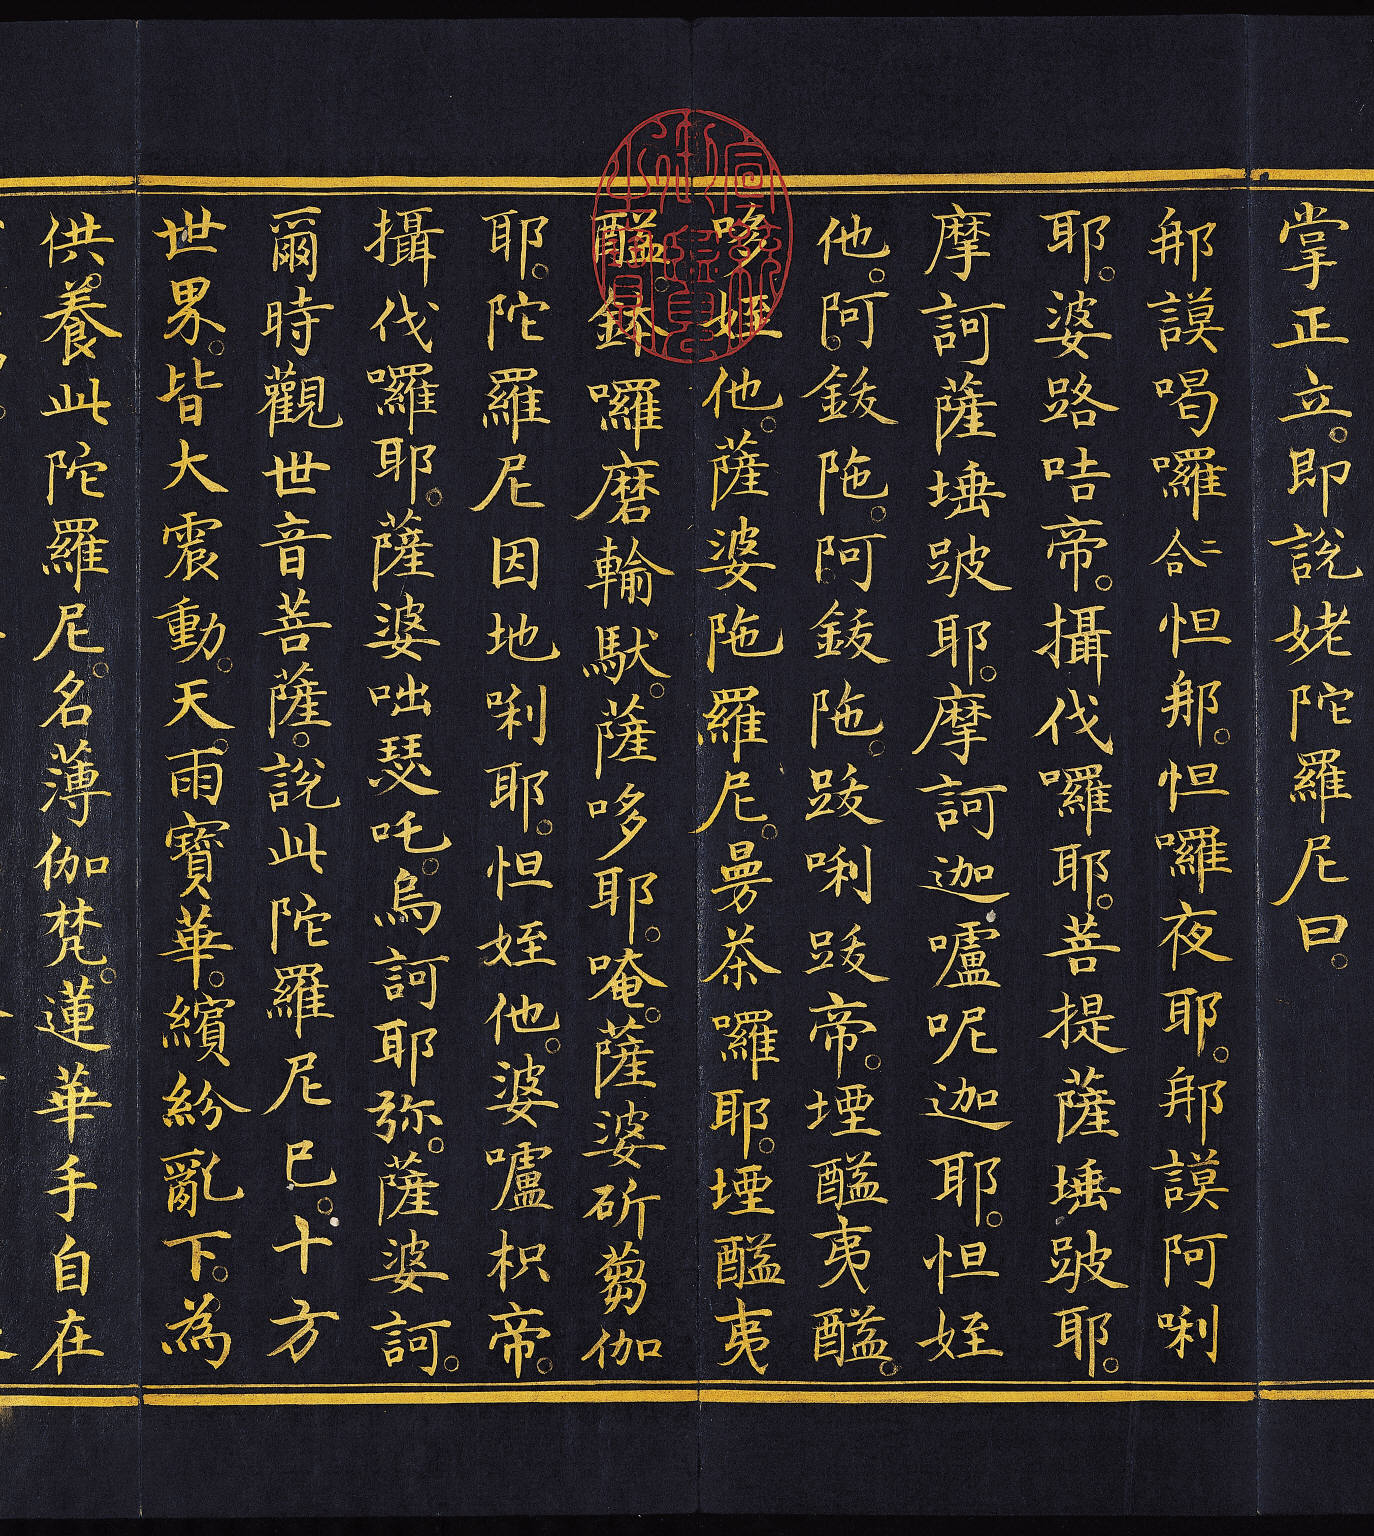 掌正立。即說姥陀羅尼曰。
那謨喝囉二合怛那。怛囉夜耶。那謨阿唎
耶。婆路咭帝。攝伐囉耶。菩提薩埵跛耶。
摩訶薩埵跛耶。摩訶迦嚧呢迦耶。怛姪
他。阿鈸陁。阿鈸陁。跋唎跋帝。堙醯夷醯。
哆姪他。薩婆陁羅尼。曼茶囉耶。堙醯夷
醯。鉢囉磨輸馱。薩哆耶。唵。薩婆斫蒭伽
耶。陀羅尼因地唎耶。怛姪他。婆嚧枳帝。
攝伐囉耶。薩婆咄瑟吒。烏訶耶弥。薩婆訶。
爾時觀世音菩薩。說此陀羅尼已。十方
世界。皆大震動。天雨寶華。繽紛亂下。為
供養此陀羅尼。名薄伽梵。蓮華手自在